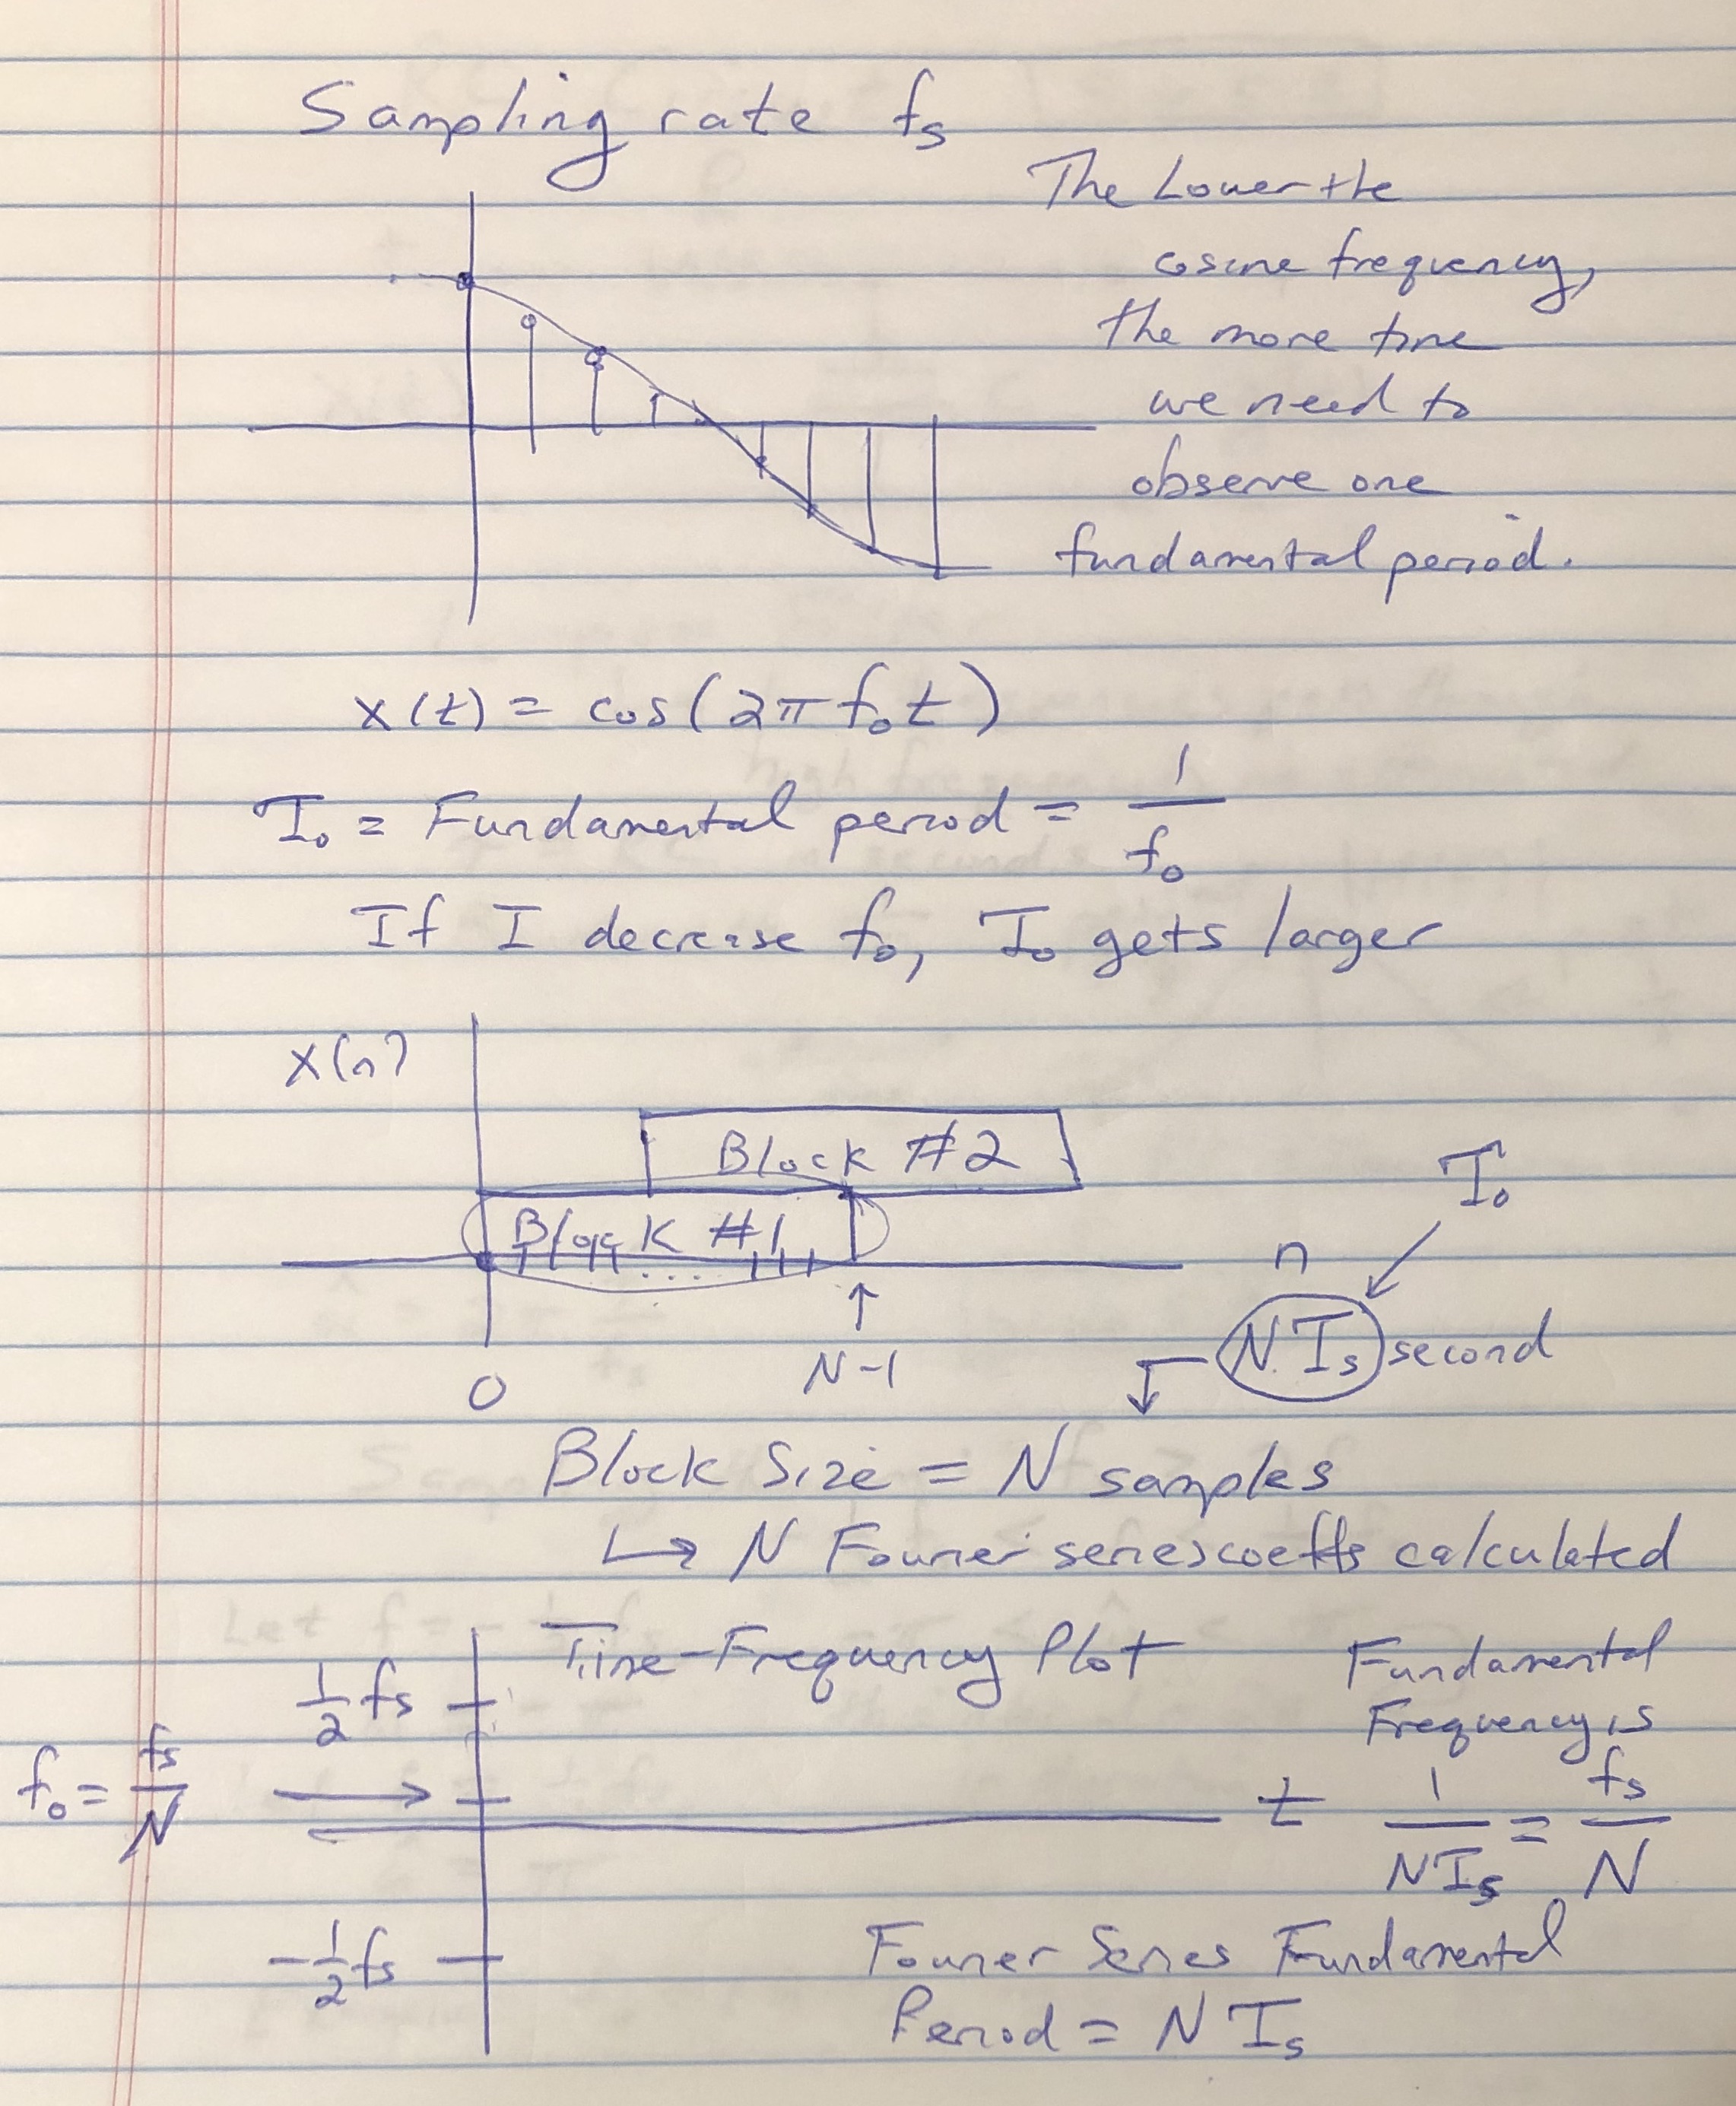 Sampling rate fs
The Lower the
cosine frequency,
the more time
we need to
observe one
fundamental period.
x(t) = cos(2π f₀t)
T₀ = Fundamental period = 1/f₀
If I decrease f₀, T₀ gets larger
x(n)
Block #2
Block #1
T₀
n
...
N.Ts second
0
N-1
Block Size = N samples
↳ N Fourier series coeffs calculated
Time-Frequency Plot
Fundamental
Frequency is
1/2 fs
f₀ = fs/N
t
1/NTs = fs/N
-1/2 fs
Fourier Series Fundamental
Period = N Ts